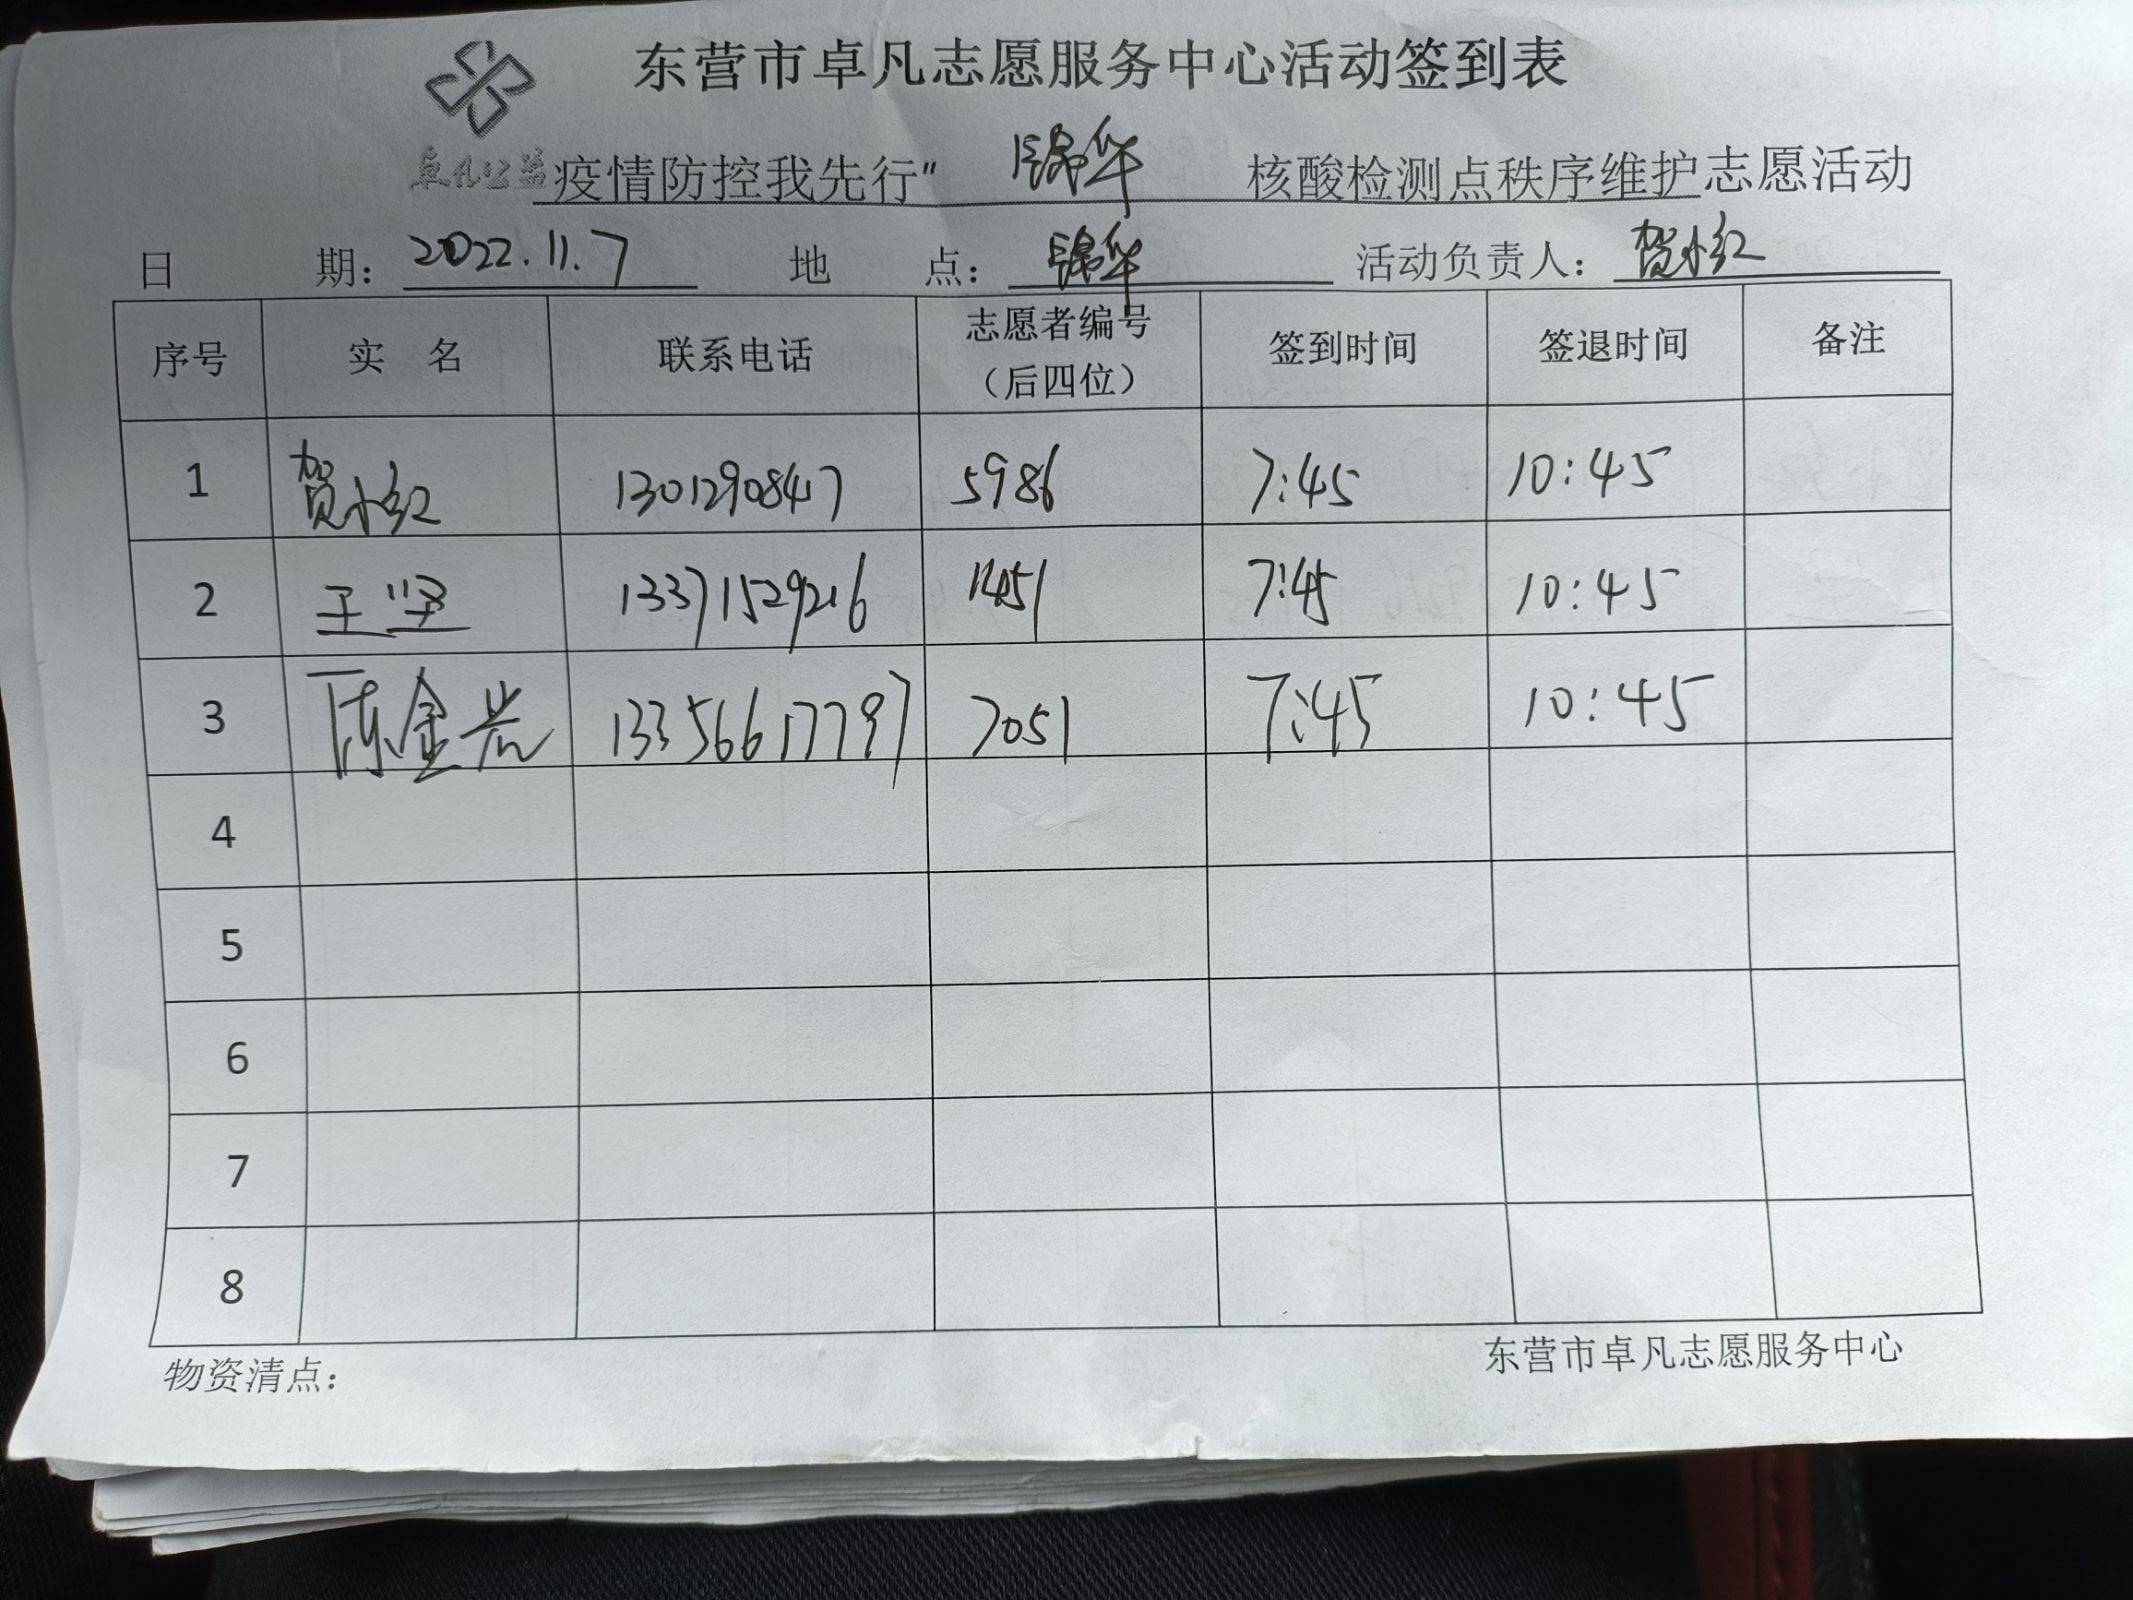 东营市卓凡志愿服务中心活动签到表
卓凡公益
疫情防控我先行" 锦华 核酸检测点秩序维护志愿活动
日 期：2022.11.7 地 点：锦华 活动负责人：贺小红
序号 实 名 联系电话 志愿者编号（后四位） 签到时间 签退时间 备注
1 贺小红 13012908417 5986 7:45 10:45
2 王坚 13371529216 1451 7:45 10:45
3 陈金光 13356617797 7051 7:45 10:45
4
5
6
7
8
物资清点： 东营市卓凡志愿服务中心